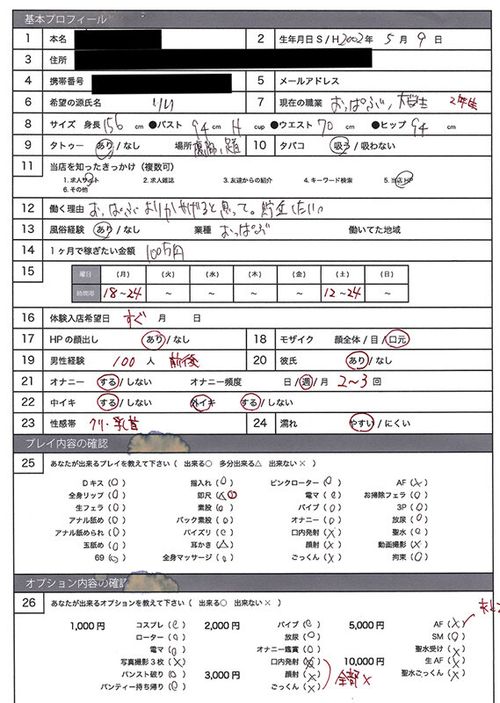 基本プロフィール
1 本名 2 生年月日 S / H 2002年 5月 9日
3 住所
4 携帯番号 5 メールアドレス
6 希望の源氏名 りい 7 現在の職業 おっぱぶ、大学生 2年生
8 サイズ 身長 156 cm ●バスト 94 cm H cup ●ウエスト 70 cm ●ヒップ 94 cm
9 タトゥー あり / なし 場所 10 タバコ 吸う / 吸わない
11 当店を知ったきっかけ（複数可）
1. 求人サイト 2. 求人雑誌 3. 友達からの紹介 4. キーワード検索 5. 当店HP
6. その他
12 働く理由 おっぱぶよりかせげると思って。貯金したい。
13 風俗経験 あり / なし 業種 おっぱぶ 働いてた地域
14 1ヶ月で稼ぎたい金額 100万円
15 曜日 （月） （火） （水） （木） （金） （土） （日）
時間帯 18～24 ～ ～ ～ ～ 12～24 ～
16 体験入店希望日 すぐ 月 日
17 HPの顔出し あり / なし 18 モザイク 顔全体 / 目 / 口元
19 男性経験 100 人 前後 20 彼氏 あり / なし
21 オナニー する / しない オナニー頻度 日 / 週 / 月 2～3 回
22 中イキ する / しない 外イキ する / しない
23 性感帯 クリ・乳首 24 濡れ やすい / にくい
プレイ内容の確認
25 あなたが出来るプレイを教えて下さい（ 出来る○ 多分出来る△ 出来ない× ）
Dキス (○) 指入れ (○) ピンクローター (○) AF (×)
全身リップ (○) 即尺 (×○) 電マ (○) お掃除フェラ (○)
生フェラ (○) 素股 (○) バイブ (○) 3P (○)
アナル舐め (○) バック素股 (○) オナニー (○) 放尿 (○)
アナル舐められ (○) パイズリ (○) 口内発射 (×) 聖水 (○)
玉舐め (○) 耳かき (△) 顔射 (×) 動画撮影 (×)
69 (○) 全身マッサージ (○) ごっくん (×) 拘束 (○)
オプション内容の確認
26 あなたが出来るオプションを教えて下さい（ 出来る○ 出来ない× ）
1,000円 コスプレ (○) 2,000円 バイブ (○) 5,000円 AF (×)
ローター (○) 放尿 (○) SM (○)
電マ (○) オナニー鑑賞 (○) 聖水受け (×)
写真撮影3枚 (×) 口内発射 (×) 10,000円 生AF (×)
パンスト破り (○) 3,000円 顔射 (×) 全部× 聖水ごっくん (×)
パンティー持ち帰り (○) ごっくん (×)